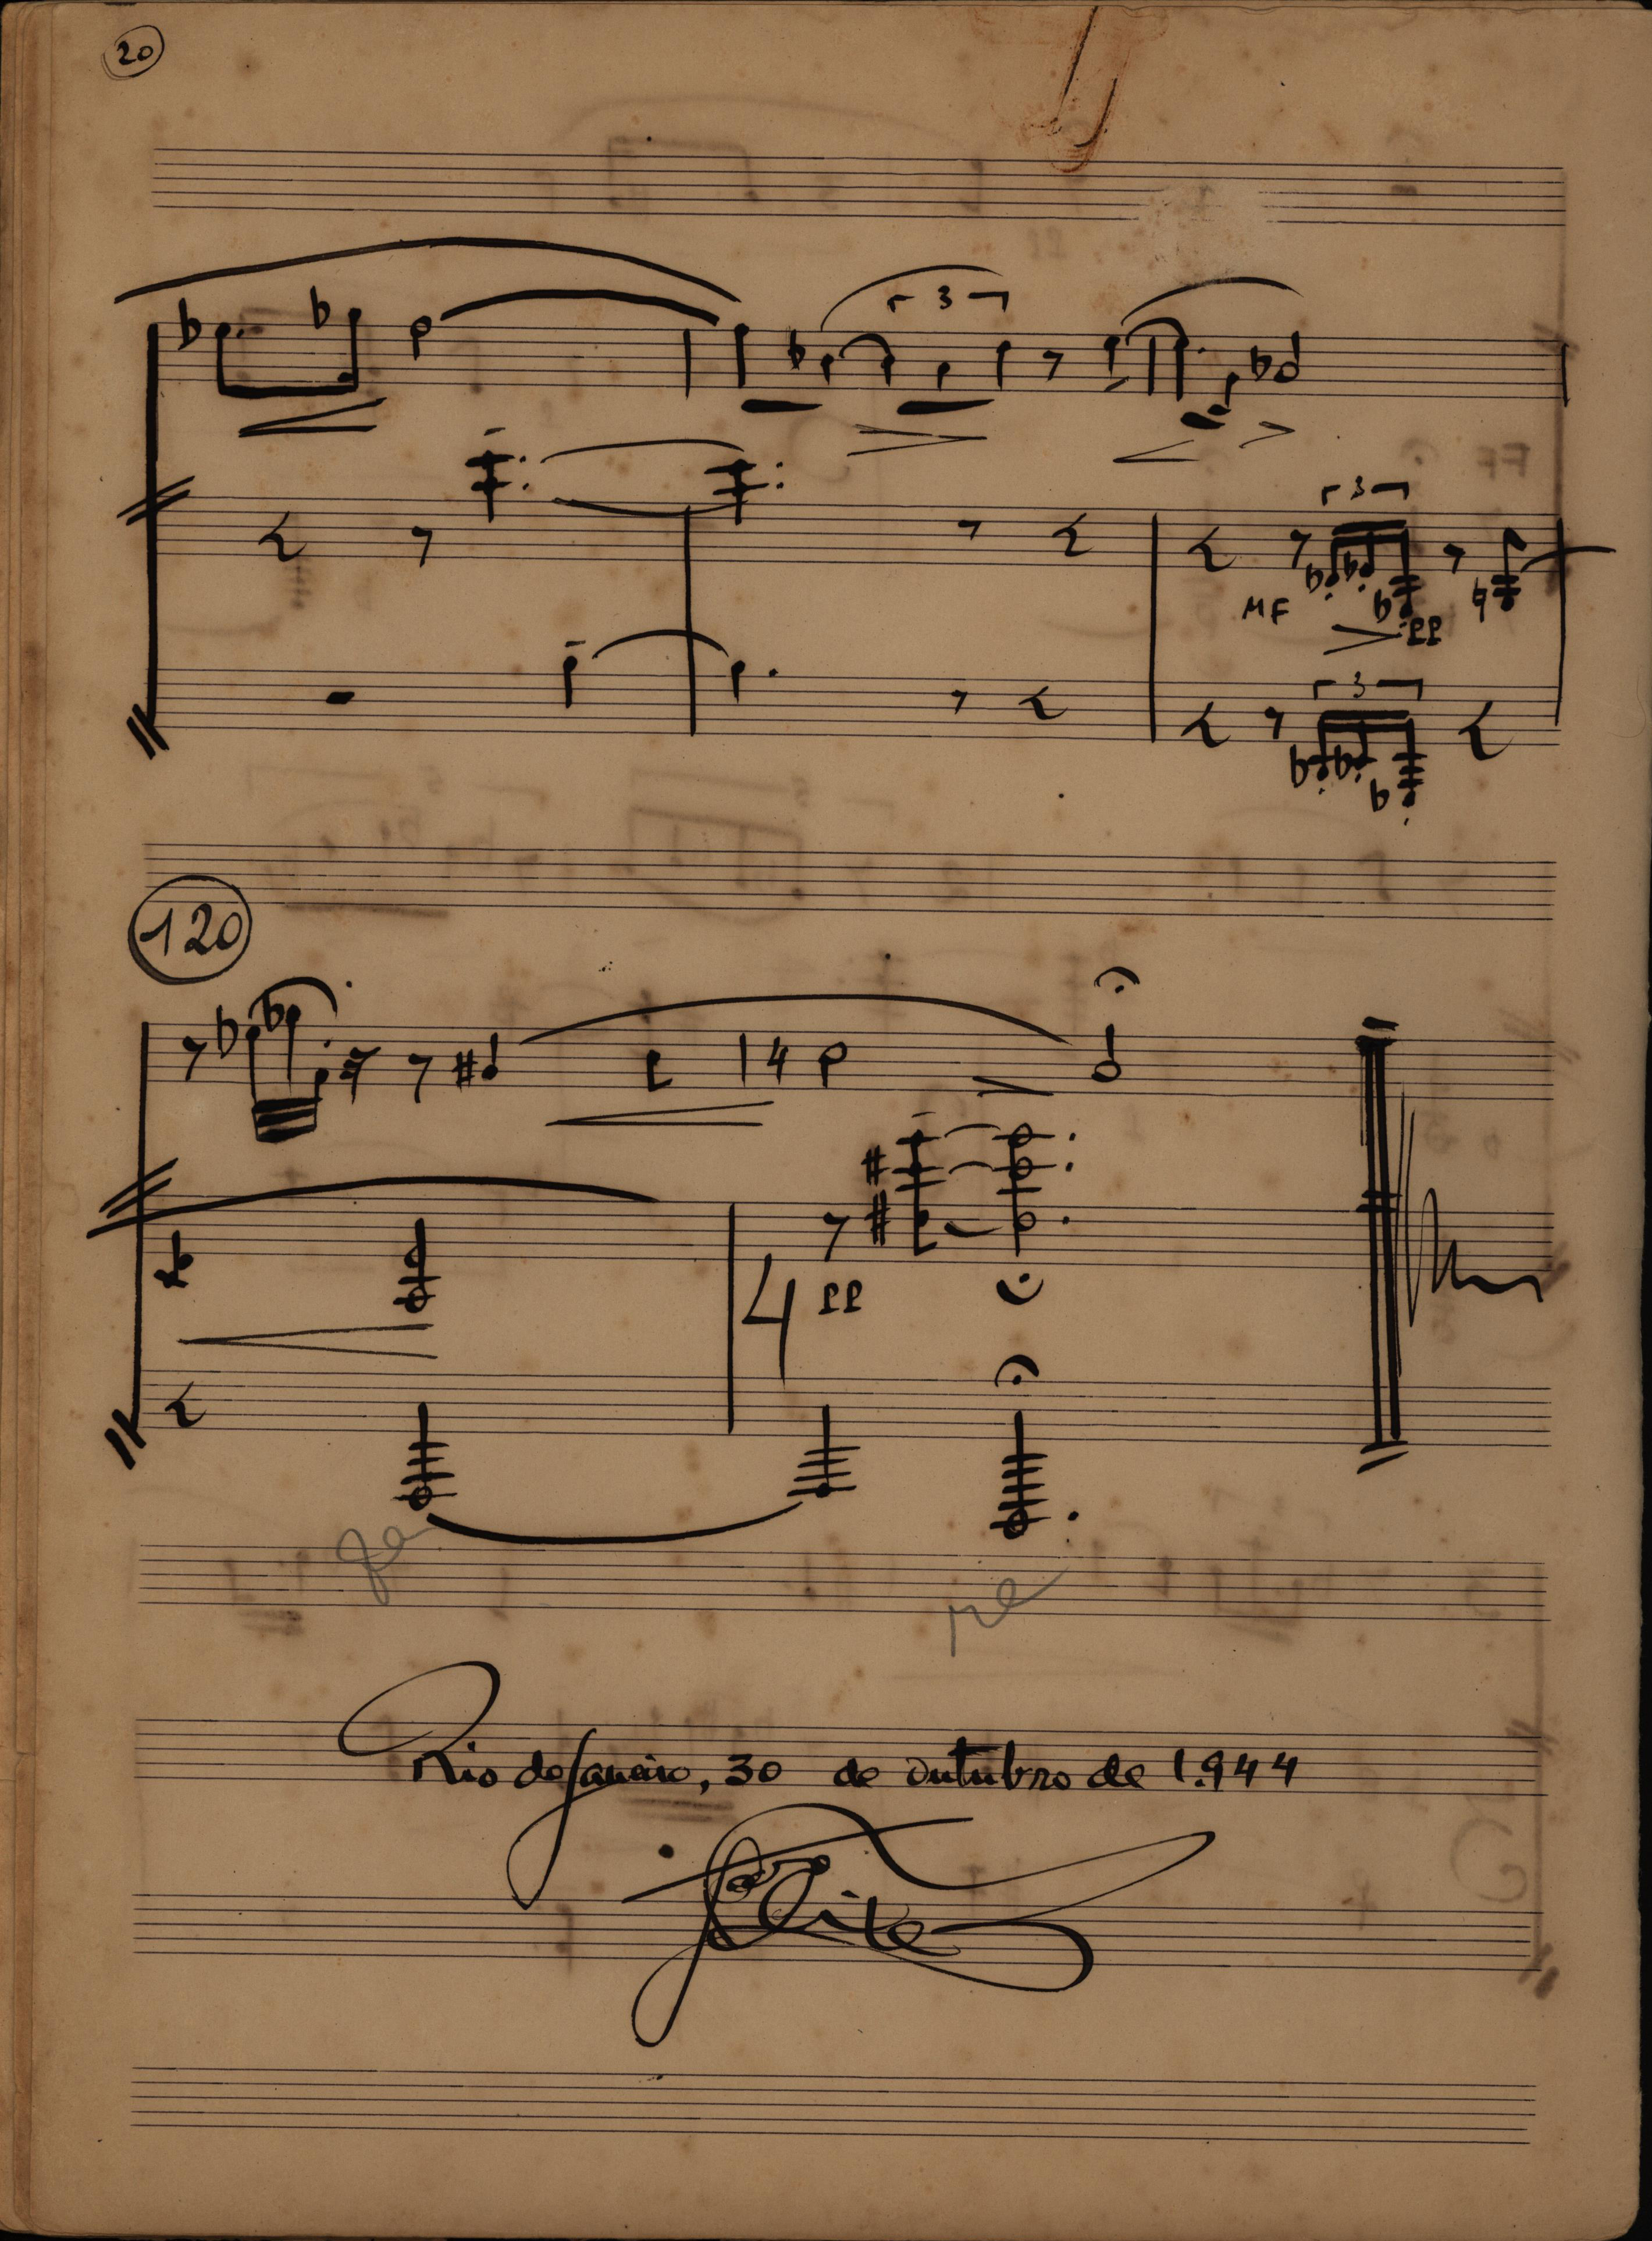 20
3
3
MF
PP
3
120
4
4 PP
fa
re
Rio de Janeiro, 30 de outubro de 1.944